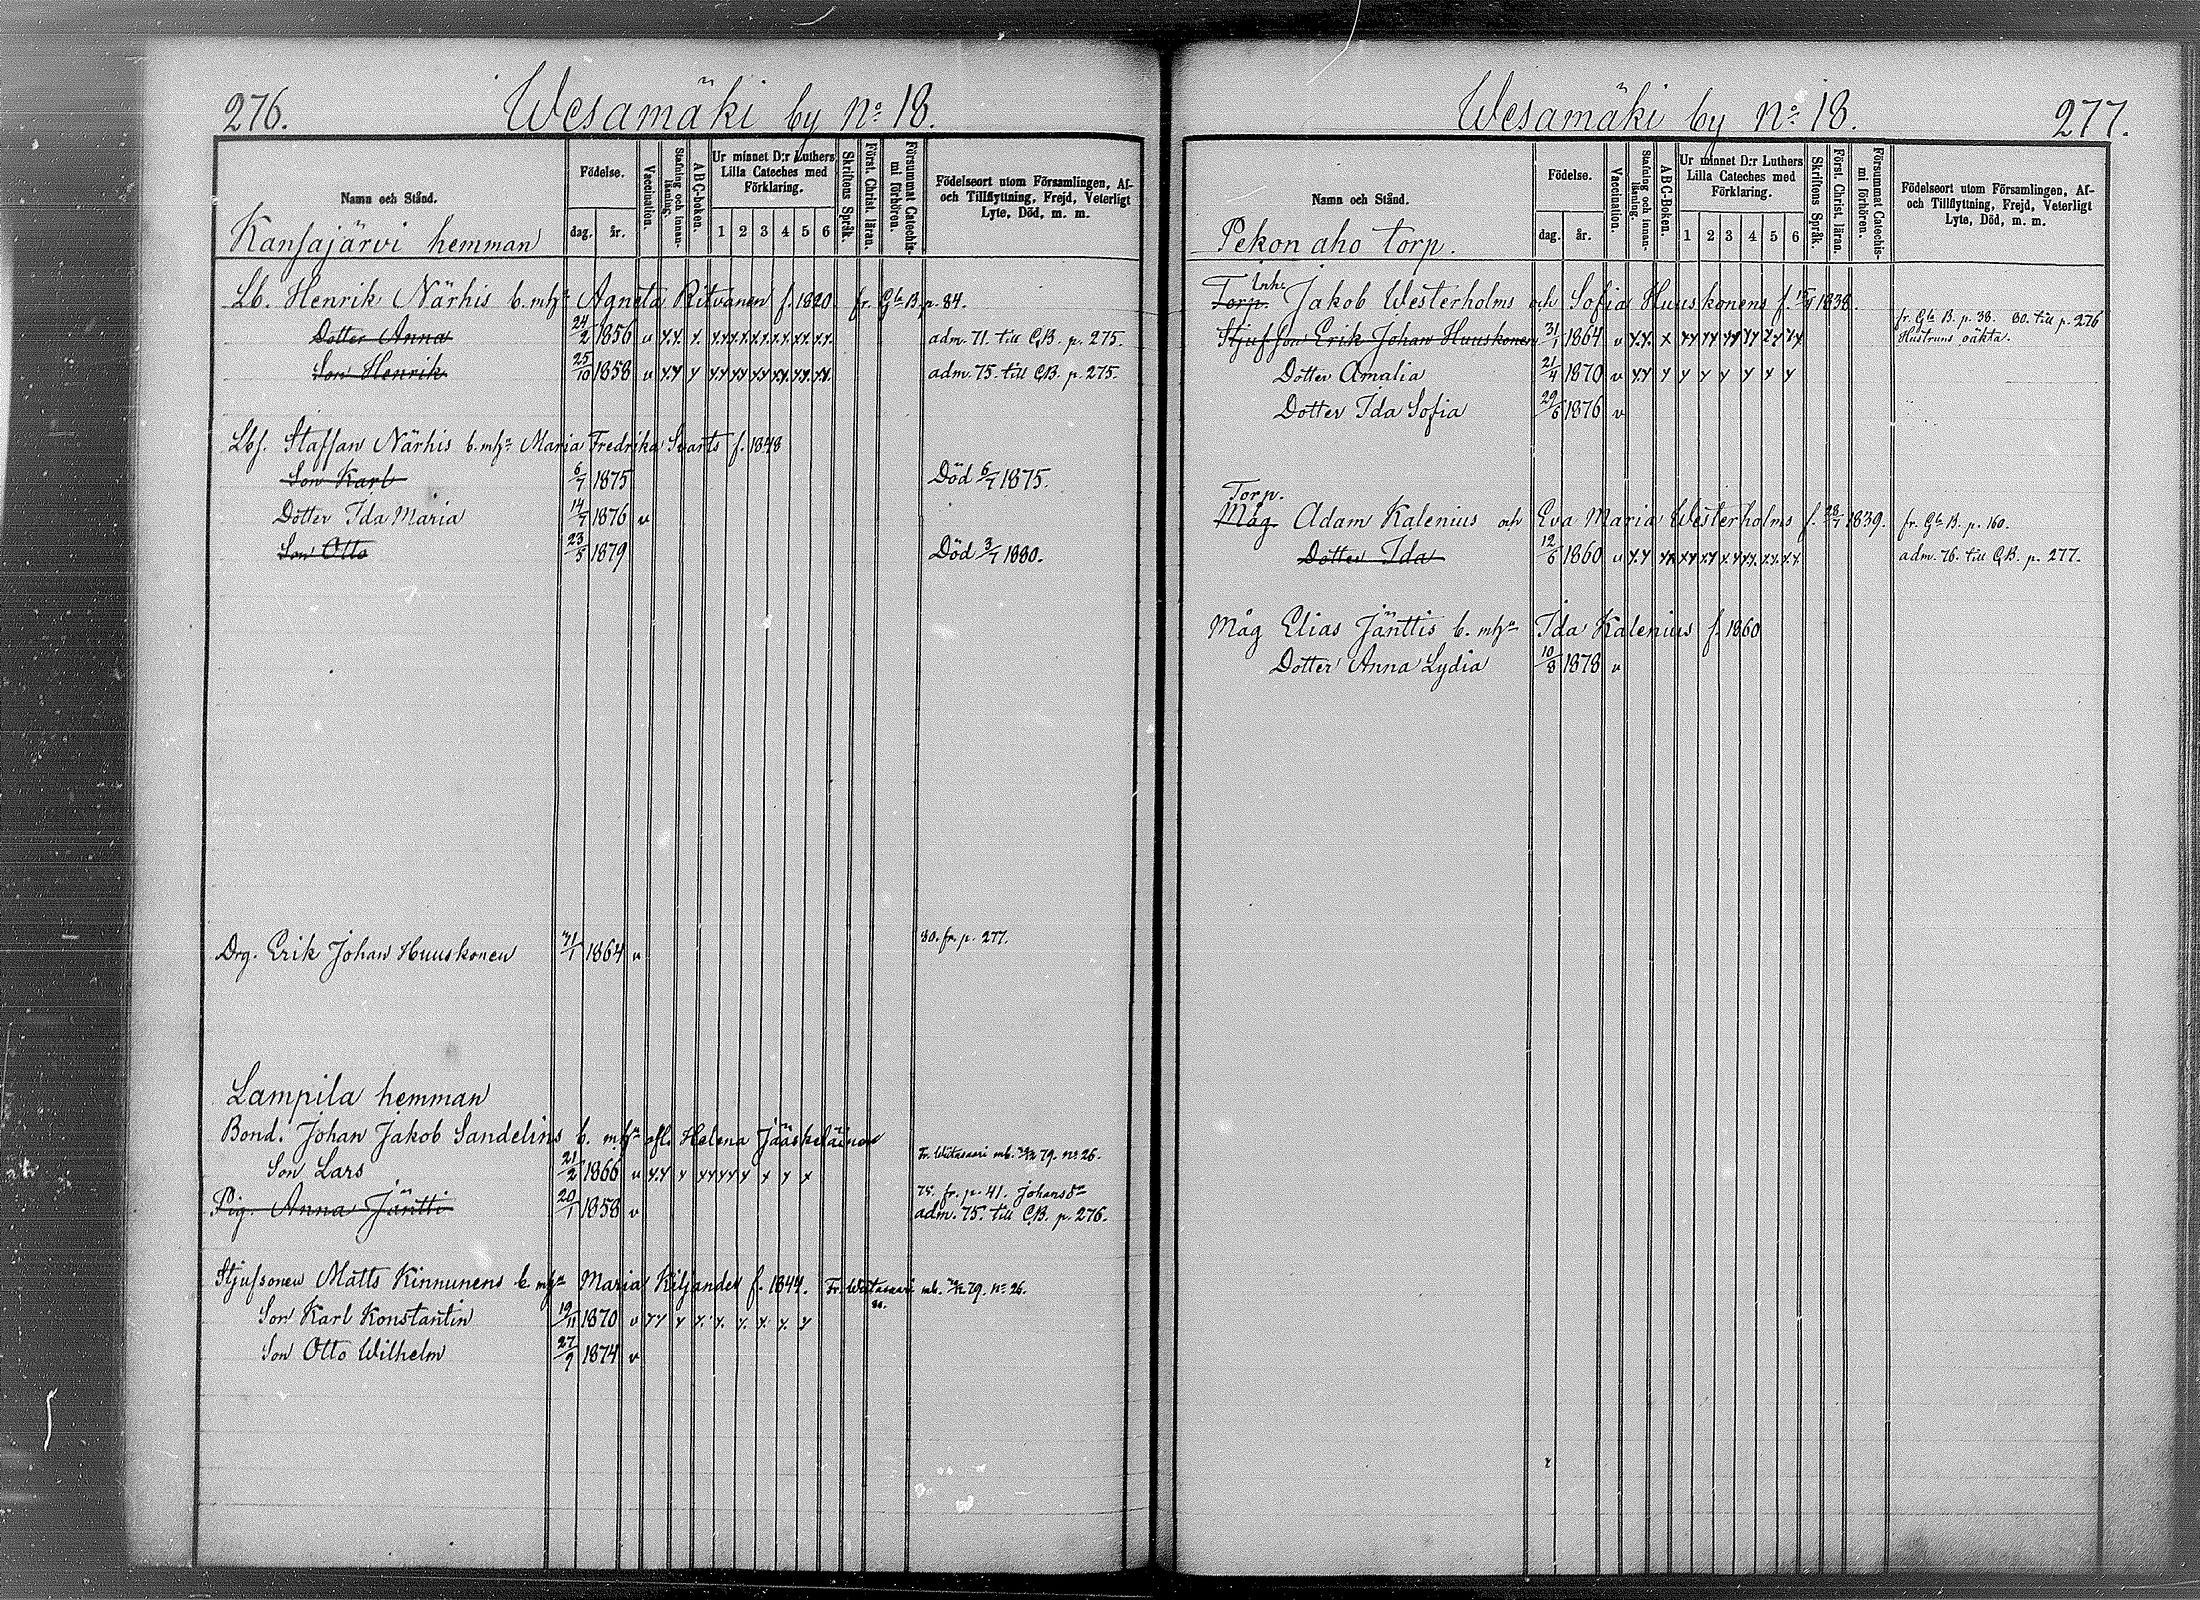 276.
Wesamäki by No 18.
Namn och Stånd.
Födelse.
dag. år.
Vaccination.
Stafning och innanläsning.
ABC-boken.
Ur minnet D:r Luthers Lilla Cateches med Förklaring.
1 2 3 4 5 6
Skriftens Språk.
Först. Christ. läran.
Försummat Catechismi förhören.
Födelseort utom Församlingen, Af- och Tillflyttning, Frejd, Veterligt Lyte, Död, m. m.
Kansajärvi hemman
Lb. Henrik Närhis b. mhn Agneta Ritvanen f. 1820. fr. Gla B. p. 84.
Dotter Anna 24/2 1856 v adm. 71. till C.B. p. 275.
Son Henrik 25/10 1858 v adm. 75. till C.B. p. 275.
Lbs. Staffan Närhis b. mhn Maria Fredrika Svarts f. 1848
Son Karl 6/7 1875 Död 6/7 1875.
Dotter Ida Maria 14/7 1876 v
Son Otto 23/5 1879 Död 3/7 1880.
80. fr. p. 277.
Drg. Erik Johan Huuskonen 31/1 1864 v
Lampila hemman
Bond. Johan Jakob Sandelins b. mhn afl. Helena Jääskeläinen
Fr. Wiitasaari mb. 79. No 26.
Son Lars 21/2 1866 v
75. fr. p. 41. Johansdr
Pig. Anna Jäntti 20/1 1858 v adm. 75. till C.B. p. 276.
Stjufsonen Matts Kinnunens b. mhn Maria Kiljander f. 1844. Fr. Wiitasaari mb. 79. No 26.
Son Karl Konstantin 19/11 1870 v
Son Otto Wilhelm 27/9 1874 v
Wesamäki by No 18.
277.
Namn och Stånd.
Födelse.
dag. år.
Vaccination.
Stafning och innanläsning.
ABC-Boken.
Ur minnet D:r Luthers Lilla Cateches med Förklaring.
1 2 3 4 5 6
Skriftens Språk.
Först. Christ. läran.
Försummat Catechismi förhören.
Födelseort utom Församlingen, Af- och Tillflyttning, Frejd, Veterligt Lyte, Död, m. m.
Pekon aho torp.
Inh.
Torp. Jakob Westerholms och Sofia Huuskonens f. 1838.
fr. Gla B. p. 38. 80. till p. 276
Stjufson Erik Johan Huuskonen 31/1 1864 v Hustruns oäkta.
Dotter Amalia 21/4 1870 v
Dotter Ida Sofia 29/6 1876 v
Torp.
Måg Adam Kalenius och Eva Maria Westerholms f. 28/7 1839. fr. Gla B. p. 160.
Dotter Ida 12/6 1860 v adm. 76. till C.B. p. 277.
Måg Elias Jänttis b. mhn Ida Kalenius f. 1860
Dotter Anna Lydia 10/8 1878 v